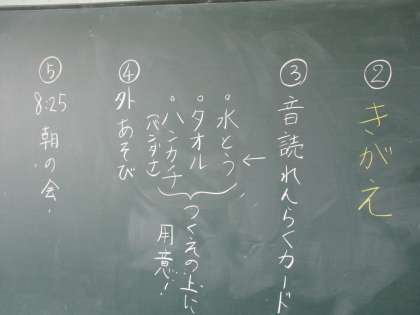 ② きがえ
③ 音読れんらくカード
←
。水とう
。タオル
。ハンカチ
(パンダさ)
つくえの上に
用意!
④ 外あそび
⑤ 8:25 朝の会.